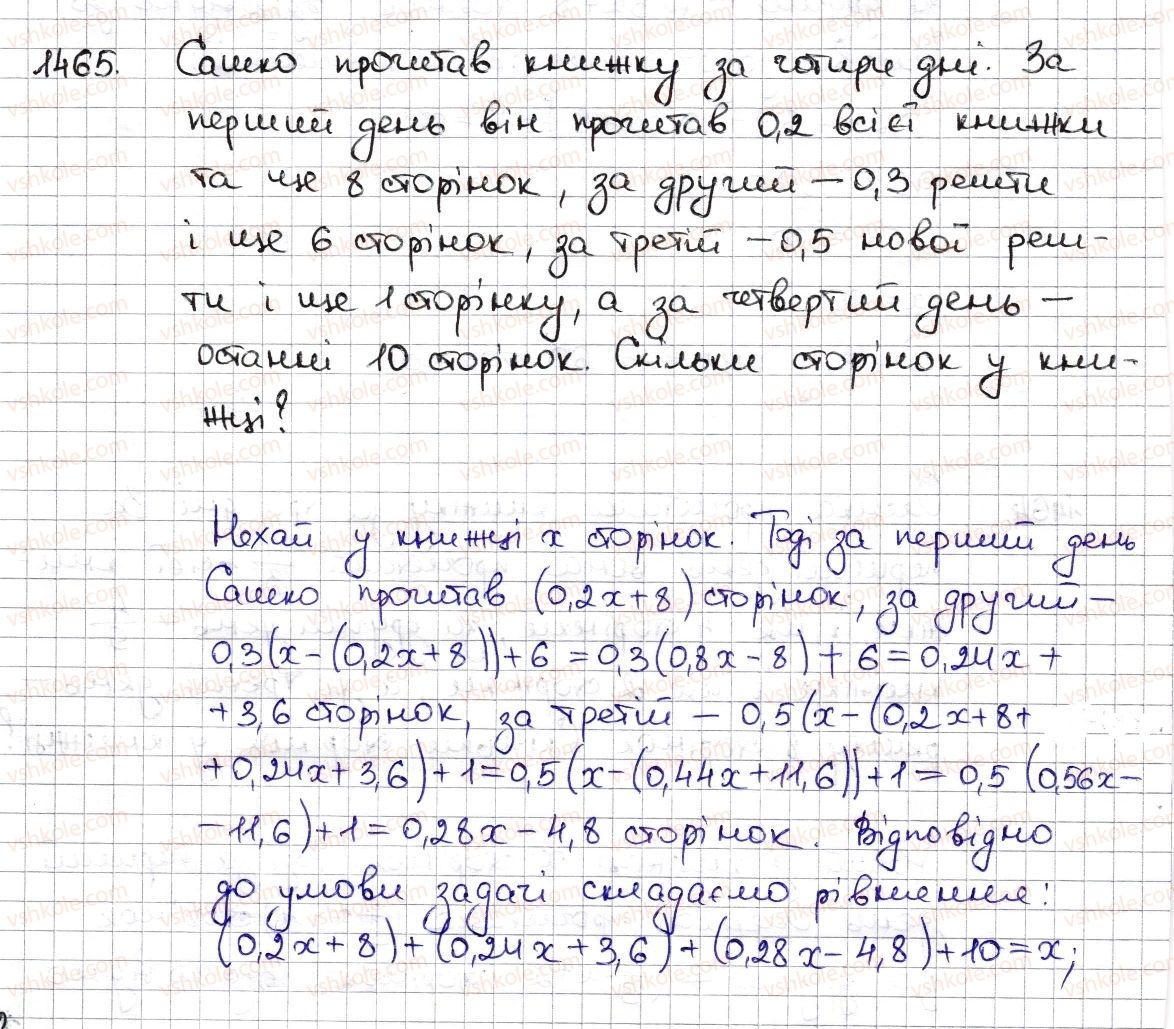 1465. Сашко прочитав книжку за чотири дні. За
перший день він прочитав 0,2 всієї книжки
та ще 8 сторінок, за другий – 0,3 решти
і ще 6 сторінок, за третій – 0,5 нової реш-
ти і ще 1 сторінку, а за четвертий день –
останні 10 сторінок. Скільки сторінок у кни-
жці?
Нехай у книжці x сторінок. Тоді за перший день
Сашко прочитав (0,2x+8) сторінок, за другий –
0,3(x-(0,2x+8))+6=0,3(0,8x-8)+6=0,24x+
+3,6 сторінок, за третій – 0,5(x-(0,2x+8+
+0,24x+3,6)+1=0,5(x-(0,44x+11,6))+1=0,5(0,56x-
-11,6)+1=0,28x-4,8 сторінок. Відповідно
до умови задачі складаємо рівняння:
(0,2x+8)+(0,24x+3,6)+(0,28x-4,8)+10=x;